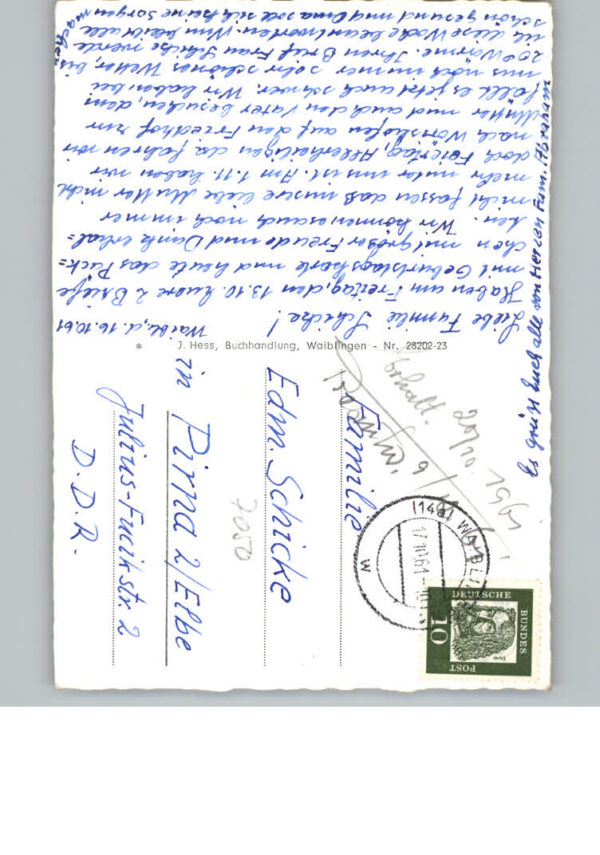 Waibl., d. 16.10.61
Liebe Familie Schicke!
Haben am Freitag, den 13.10. Eure 2 Briefe
mit Geburtstagskarte und heute das Päck=
chen mit großer Freude und Dank erhal=
ten. Wir können es auch noch immer
nicht fassen daß unsere liebe Mutter nicht
mehr unter uns ist. Am 1.11. haben wir
doch Feiertag, Allerheiligen da fahren wir
nach auf den Friedhof zur
Mutter und auch den Vater besuchen, dem
fällt es jetzt auch schwer. Wir haben bei
uns noch immer sehr schönes Wetter, bis
20° Wärme. Ihren Brief Frau Schicke werde
ich diese Woche beantworten. Wir sind alle
schön gesund und Oma soll sich keine Sorgen
machen
Es grüßt Euch alle von Herzen Fam. Abraham
* J. Hess, Buchhandlung, Waiblingen - Nr. 28202-23
Familie
Edm. Schicke
in Pirna 2/Elbe
Julius-Fucik str. 2
D.D.R.
7050
Erhalt. 20/10. 1961
(14a) WAIBLINGEN
17.10.61
DEUTSCHE
BUNDES
POST
10
Dürer